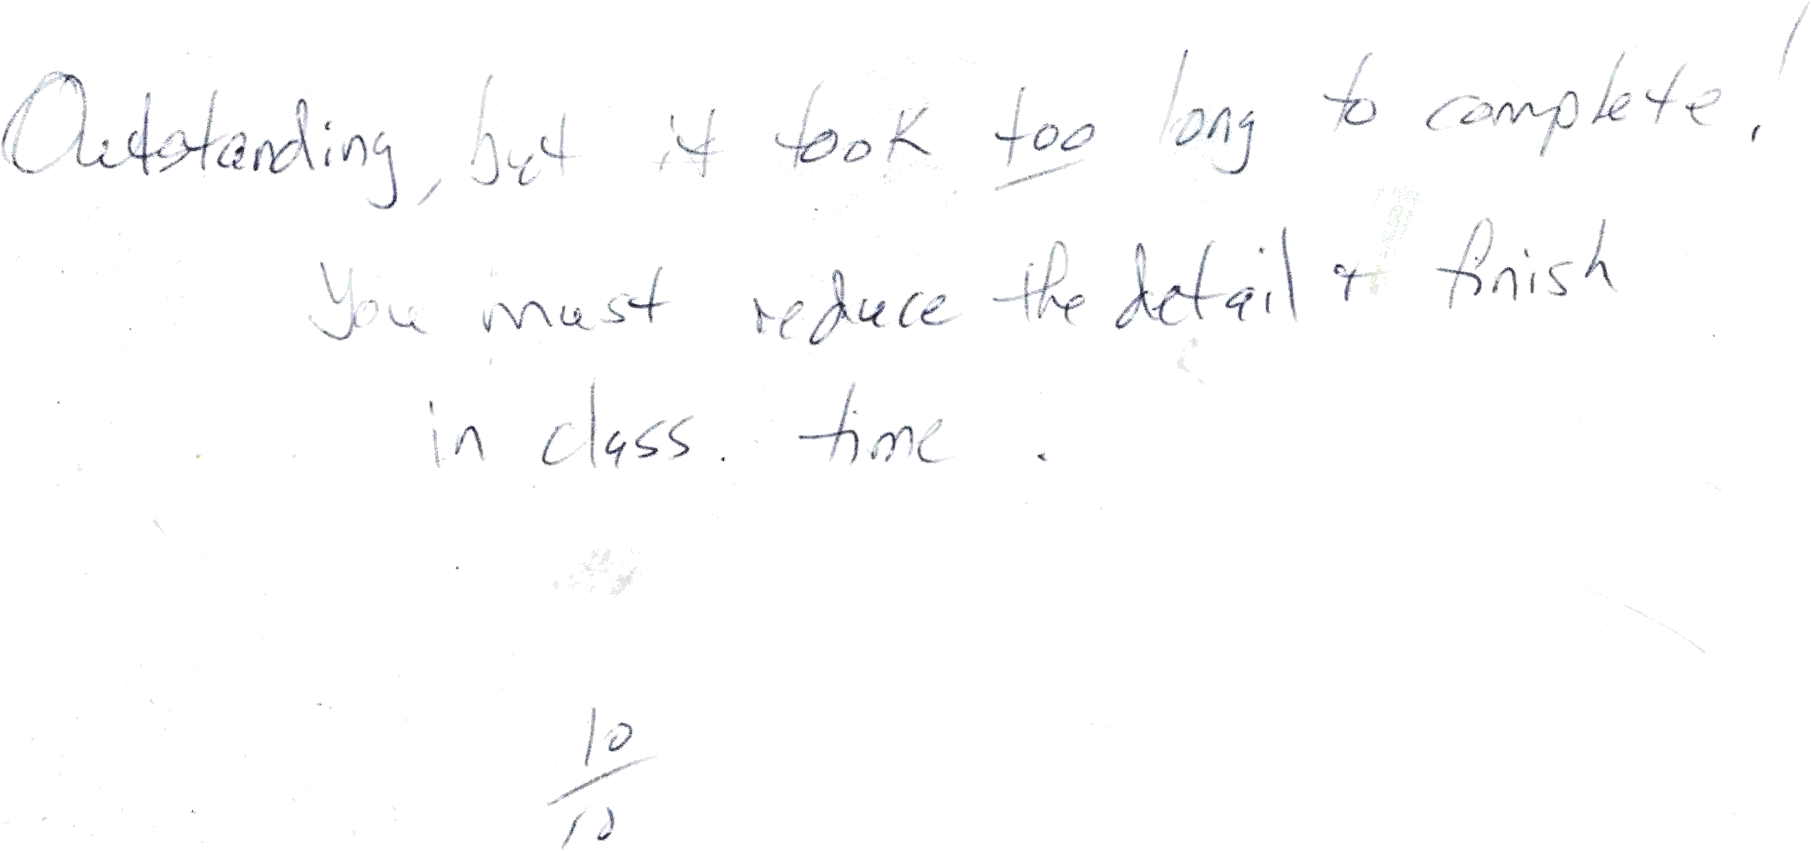 Outstanding, but it took too long to complete!
You must reduce the detail & finish
in class. time .
10
10